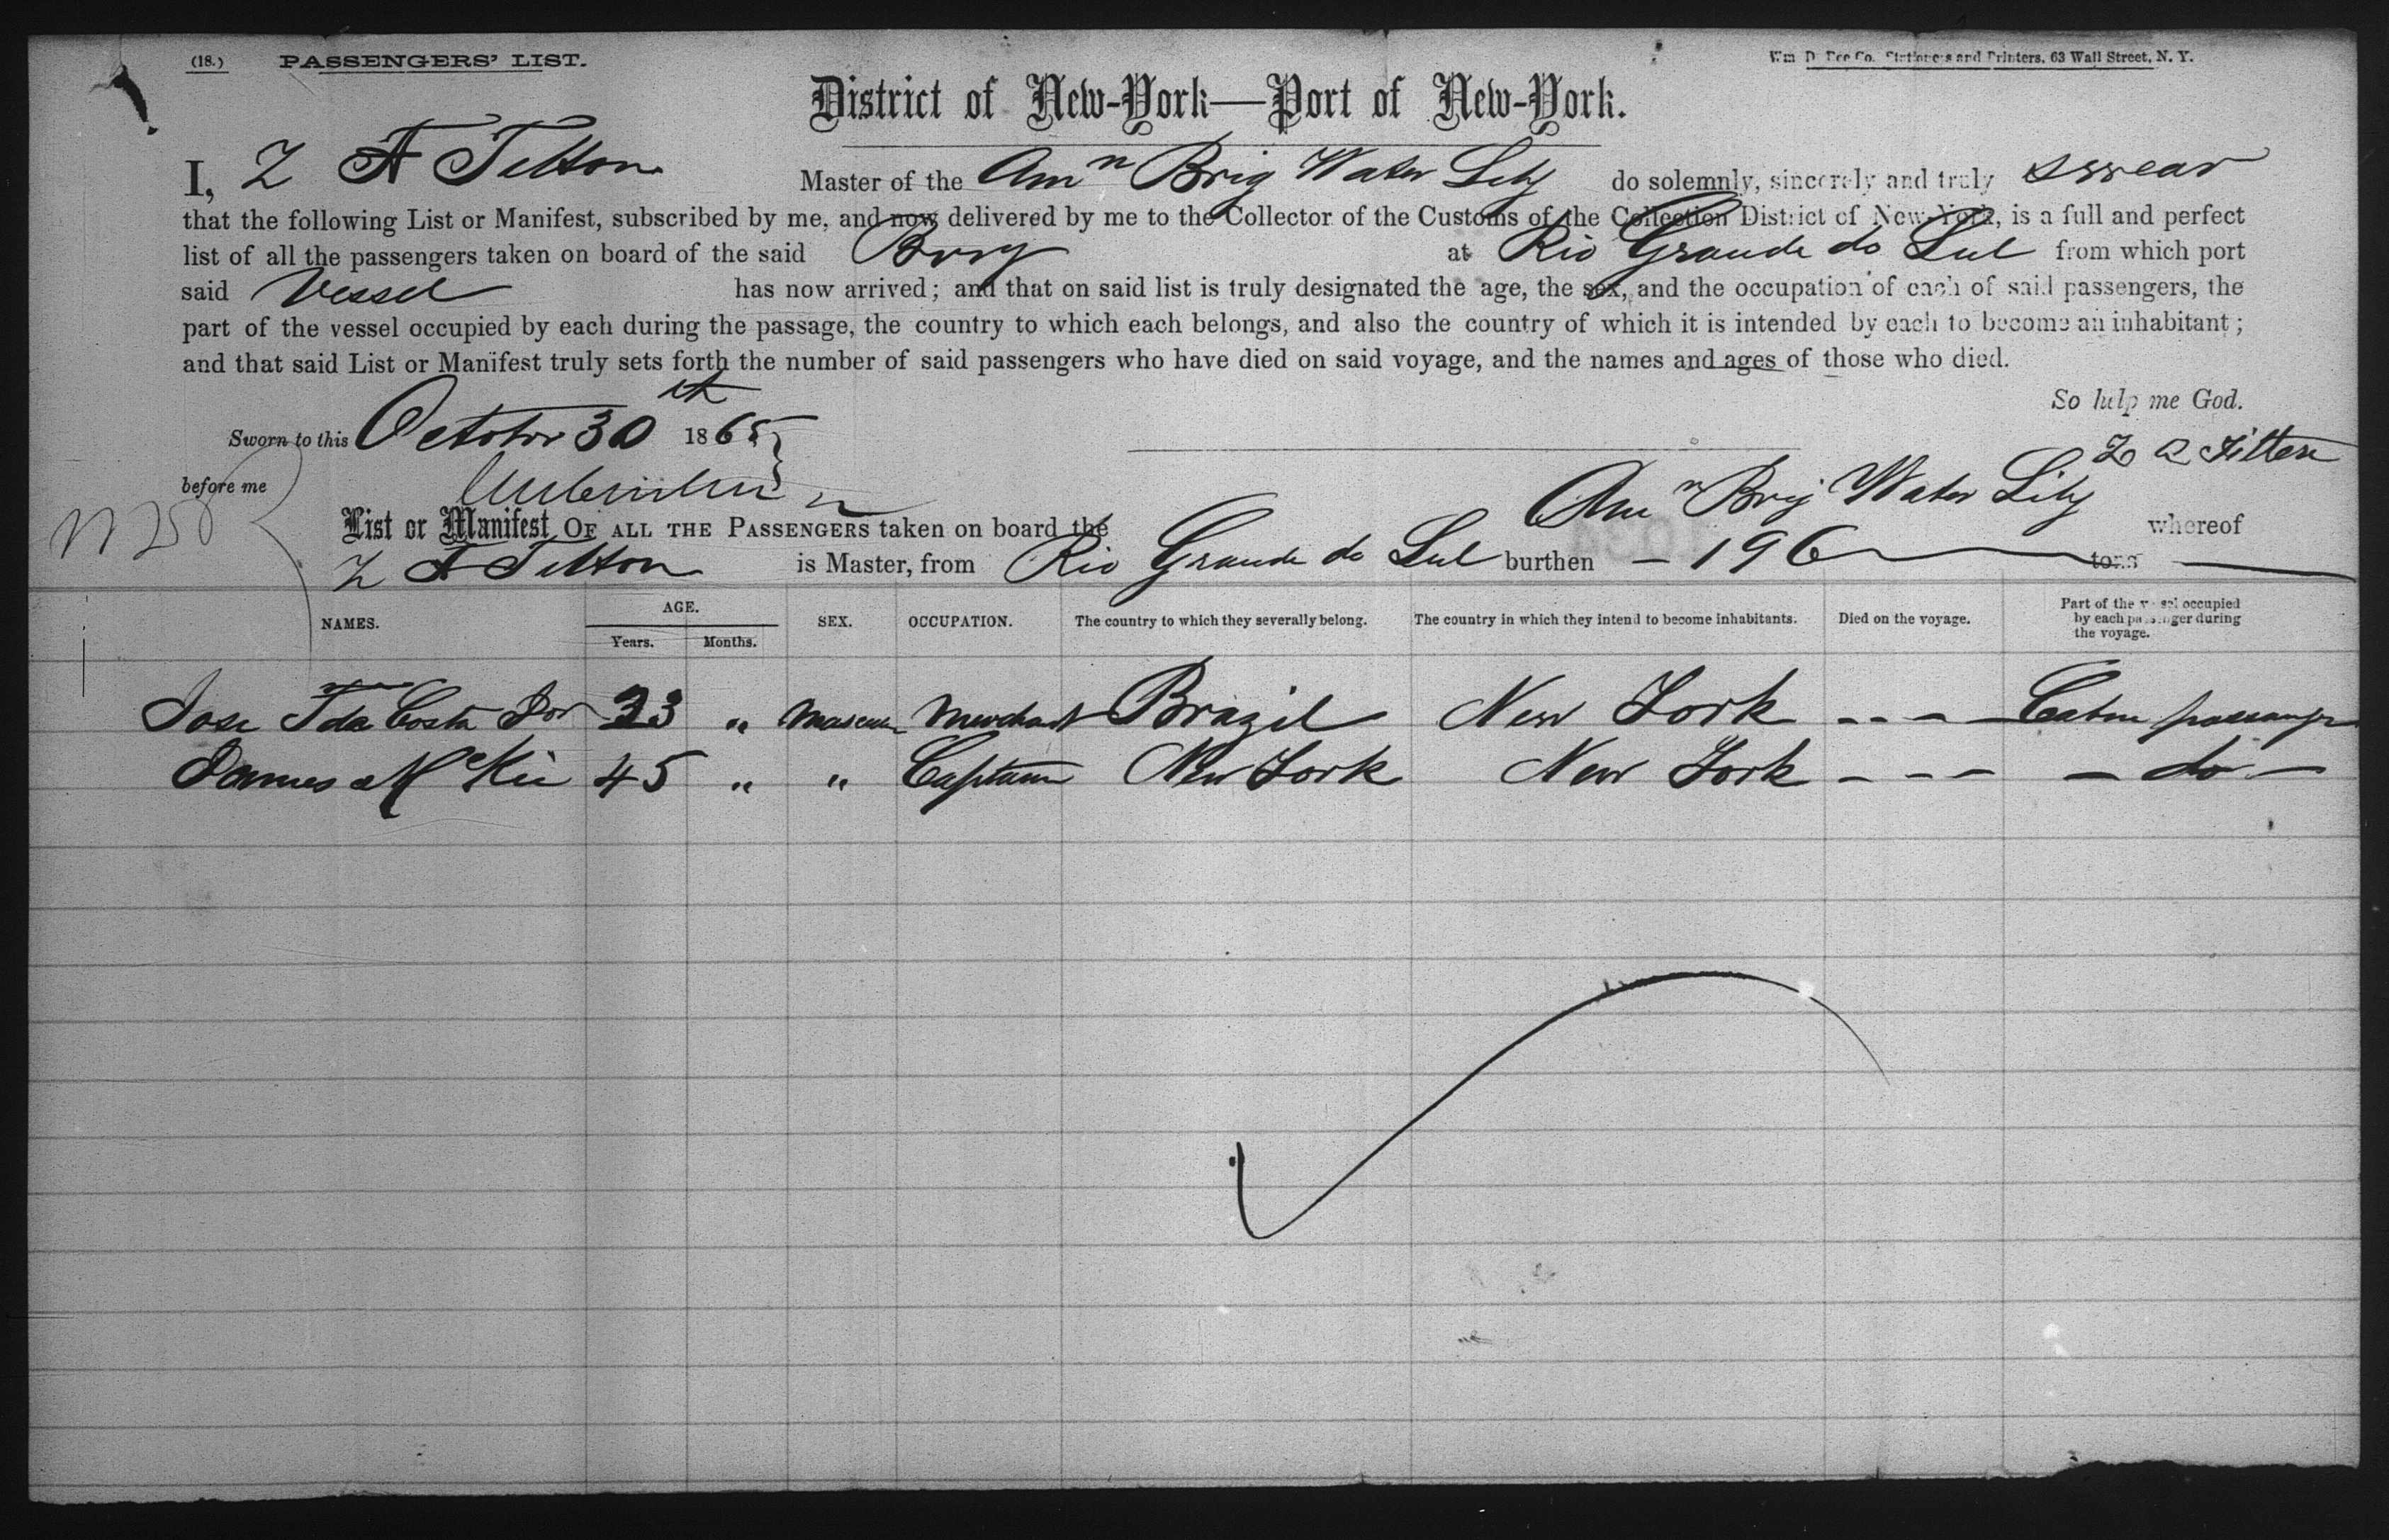 (18.) PASSENGERS' LIST.
Wm D. Roe Co. Stationers and Printers, 63 Wall Street, N. Y.
District of New-York—Port of New-York.
I, Z A Titton Master of the Amn Brig Water Lily do solemnly, sincerely and truly swear
that the following List or Manifest, subscribed by me, and now delivered by me to the Collector of the Customs of the Collection District of New-York, is a full and perfect
list of all the passengers taken on board of the said Brig at Rio Grande do Sul from which port
said Vessel has now arrived; and that on said list is truly designated the age, the sex, and the occupation of each of said passengers, the
part of the vessel occupied by each during the passage, the country to which each belongs, and also the country of which it is intended by each to become an inhabitant;
and that said List or Manifest truly sets forth the number of said passengers who have died on said voyage, and the names and ages of those who died.
So help me God.
Sworn to this October 30th 1865
Z A Titton
before me
List or Manifest OF ALL THE PASSENGERS taken on board the Amn Brig Water Lily whereof
Z A Titton is Master, from Rio Grande do Sul burthen - 196 tons
NAMES. AGE. Years. Months. SEX. OCCUPATION. The country to which they severally belong. The country in which they intend to become inhabitants. Died on the voyage. Part of the vessel occupied by each passenger during the voyage.
Jose T da Costa 23 " Merchant Brazil New York - - - Cabin passenger
James McKie 45 " " Captain New York New York - - - - do -